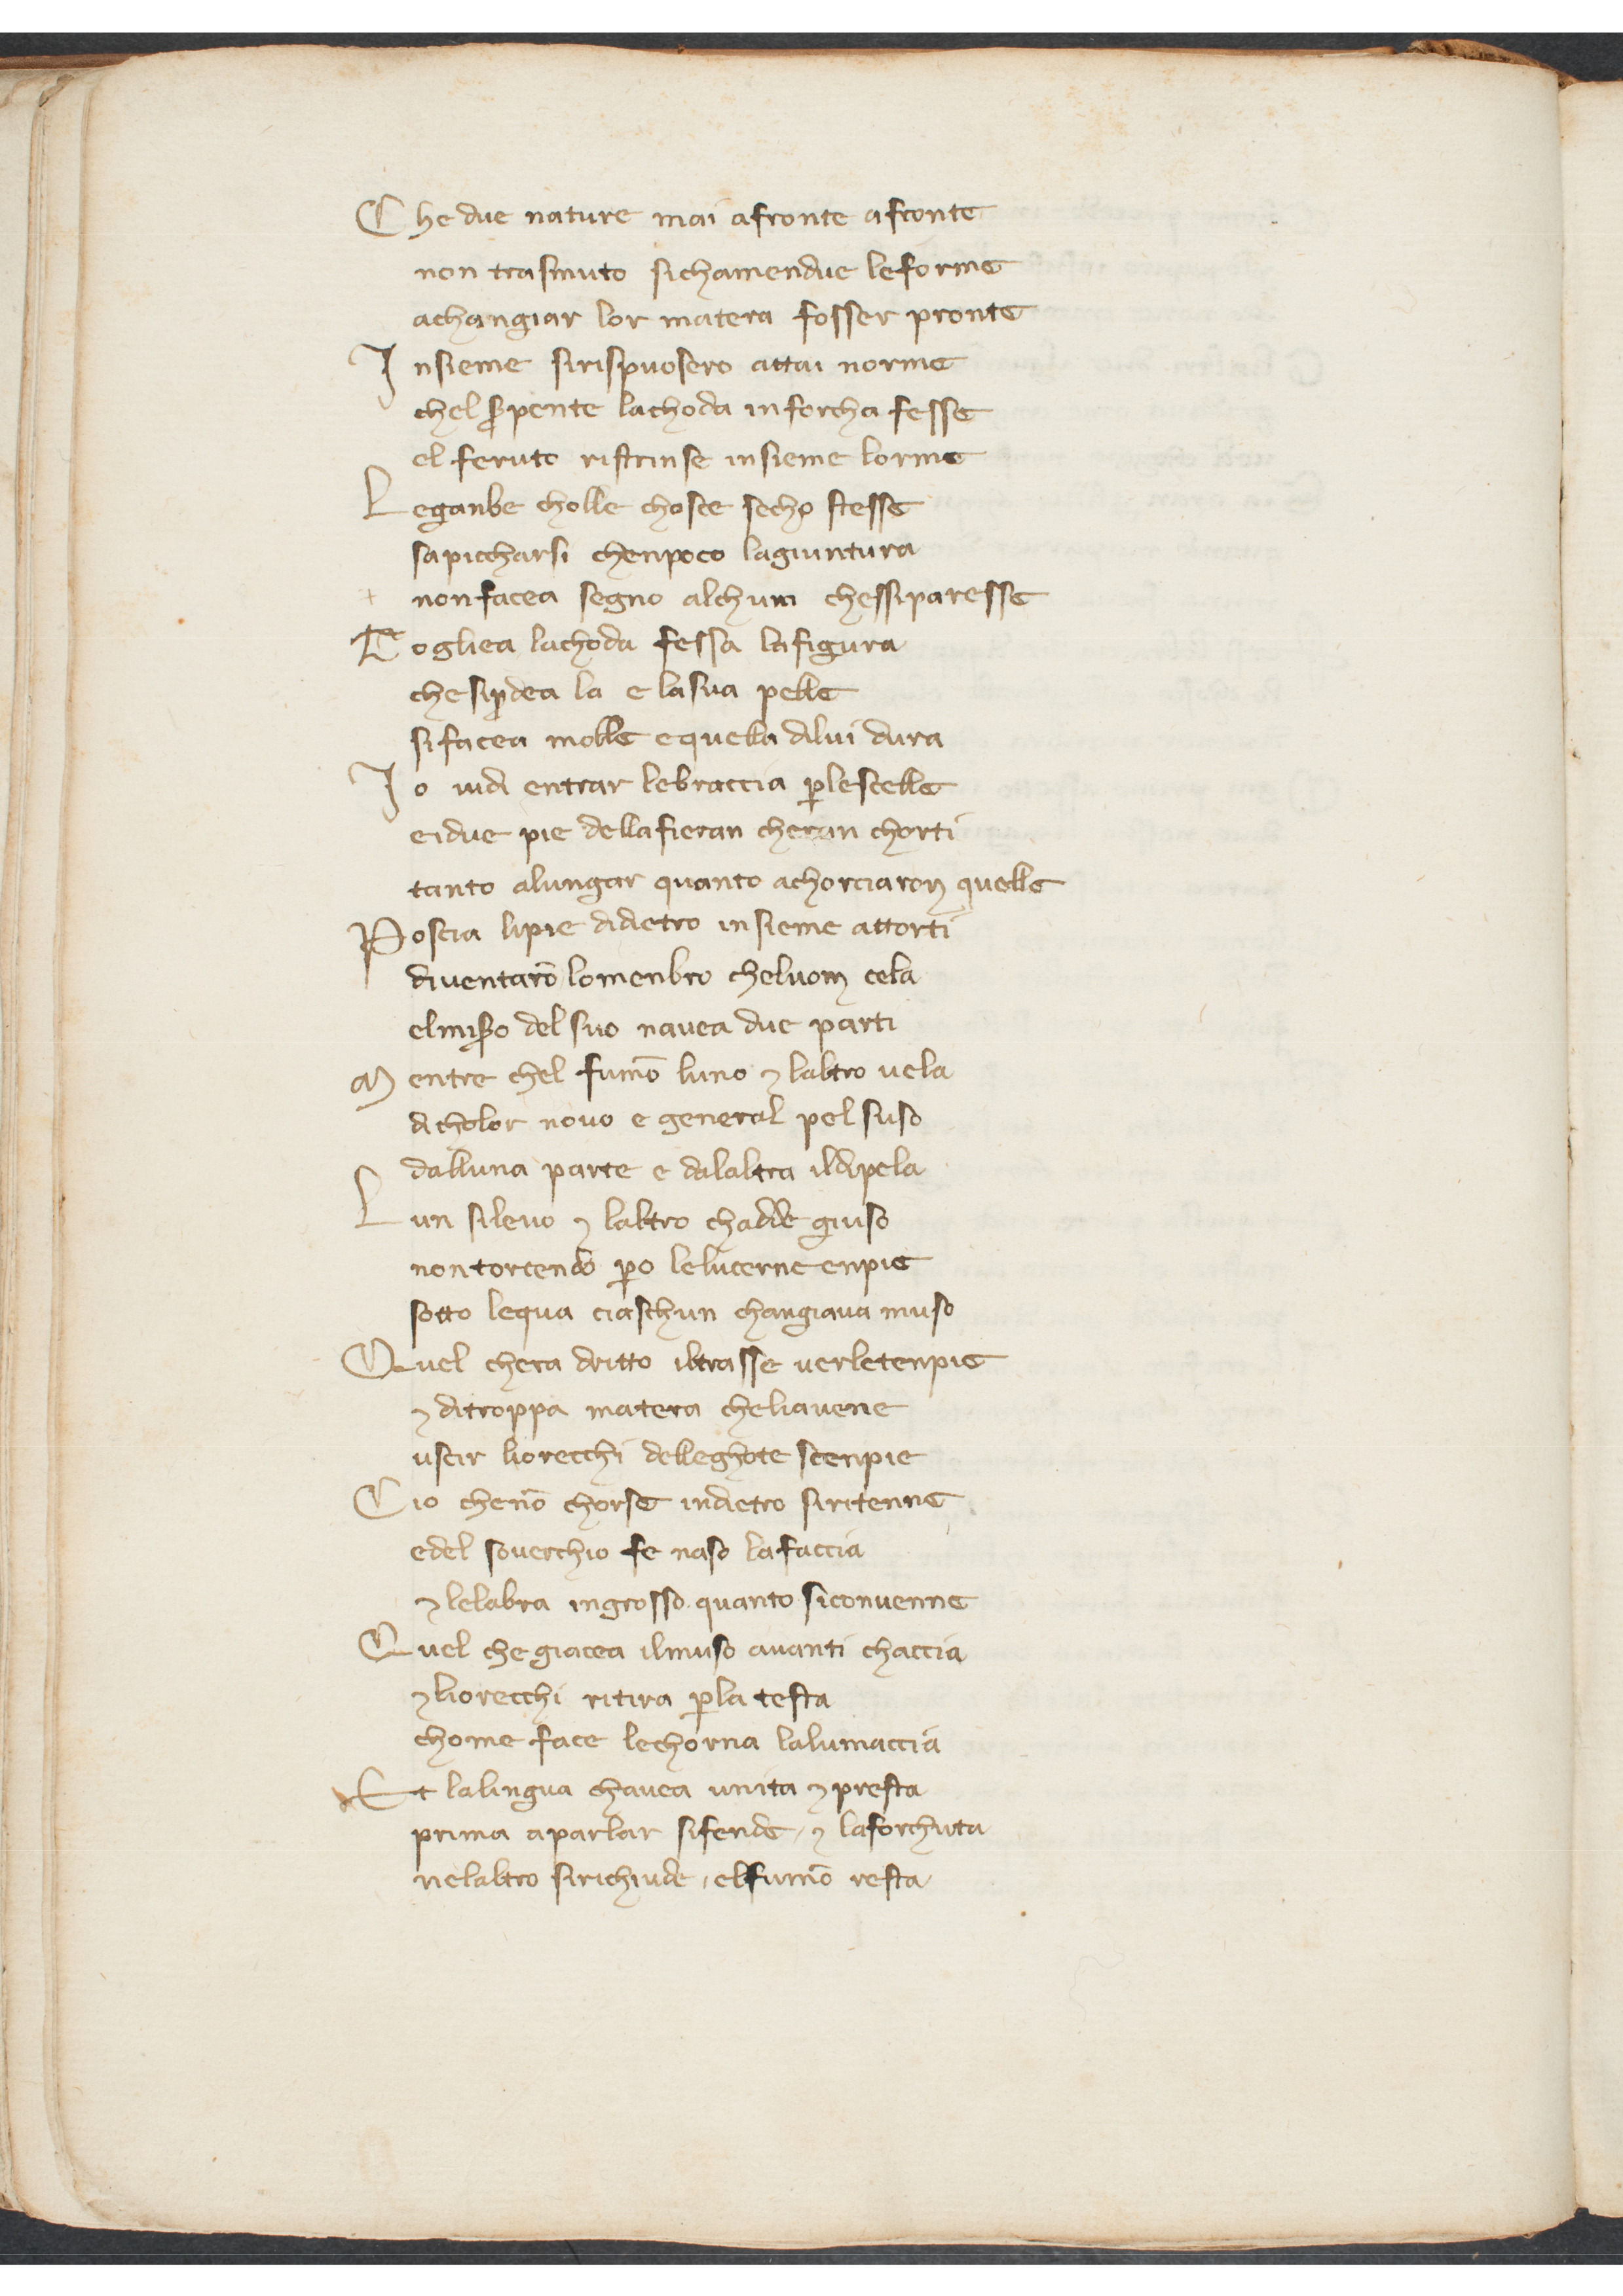 Che due nature mai afronte afronte
non trasmuto sichamendue leforme
achangiar lor matera fosser pronte
Insieme sirispuosero attai norme
chel ꝓpente lachoda inforcha fesse
el feruto ristrinse insieme lorme
Leganbe cholle chosce secho stesse
sapiccharsi chenpoco lagiuntura
nonfacea segno alchum chessiparesse
Togliea lachoda fessa lafigura
chesiꝑdea la e lasua pelle
sifacea molle equella dilui dura
Io uidi entrar lebraccia ꝑlescelle
eidue pie dellafieran cheran chorti
tanto alungar quanto achorciaron quelle
Poscia lipie didietro insieme attorti
diuentarō lomenbro cheluom cela
elmiꝓo del suo nauea due parti
Mentre chel fumō luno ⁊ laltro uela
dicholor nouo e general pel suso
dalluna parte e dalaltra ildipela
Lun sileuo ⁊ laltro chadde giuso
nontorcendo ꝑo lelucerne enpie
sotto lequa ciaschun changiaua muso
Quel chera dritto iltrasse uerletenpie
⁊ ditroppa matera cheliauene
uscir liorecchi delleghote scenpie
Cio chenō chorse indietro siritenne
edel souerchio fe naso lafaccia
⁊ lelabra ingrosso quanto siconuenne
Quel che giacea ilmuso auanti chaccia
⁊ liorecchi ritira ꝑla testa
chome face lechorna lalumaccia
Et lalingua chauea unita ⁊ presta
prima aparlar sifende / ⁊ laforchuta
nelaltro sirichiude / elfumō resta